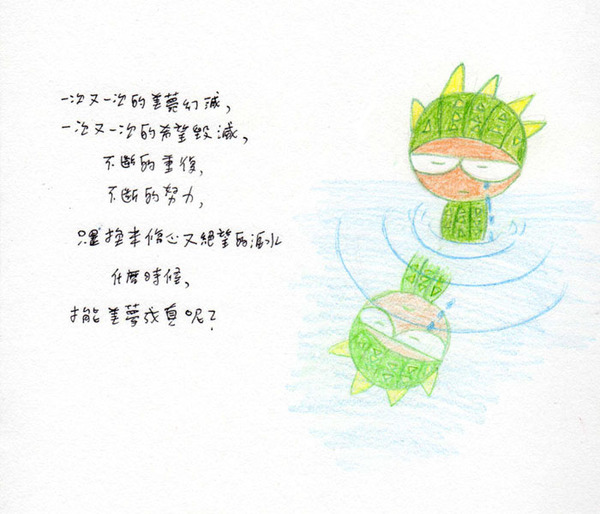 一次又一次的美夢幻滅,
一次又一次的希望毀滅,
不斷的重複,
不斷的努力,
只換來傷心又絕望的淚水
什麼時候,
才能美夢成真呢?